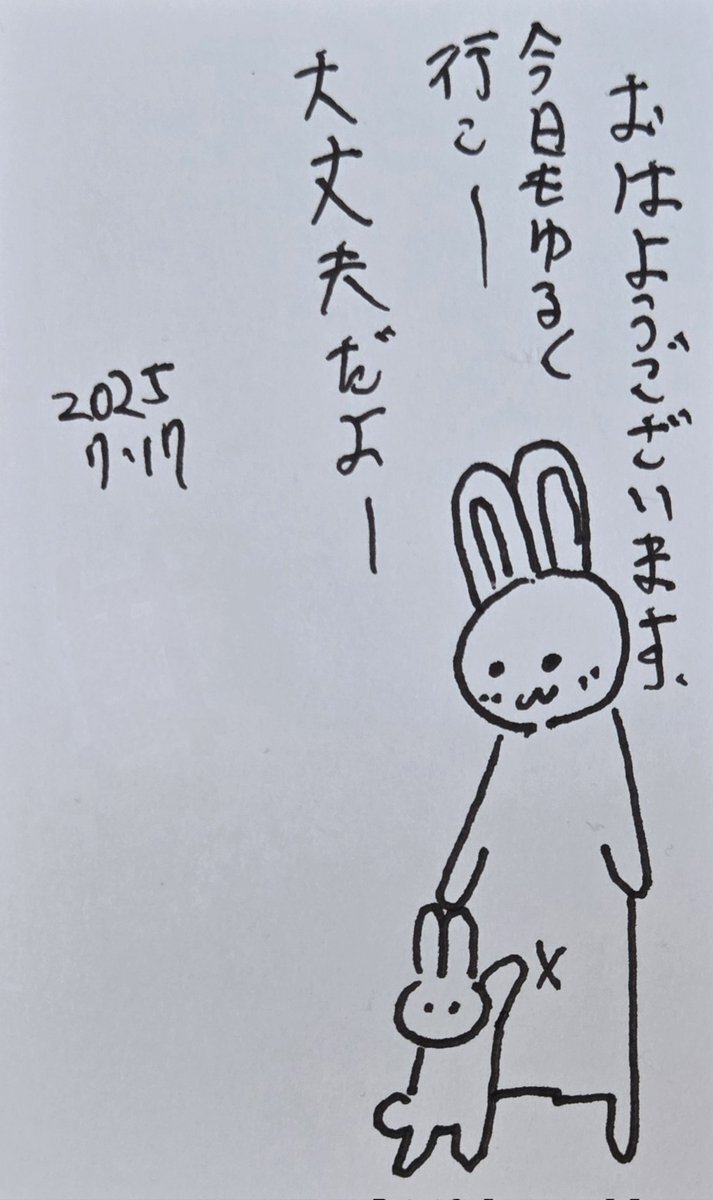 おはようございます、
今日もゆるく
行こー
大丈夫だよー
2025
7.17